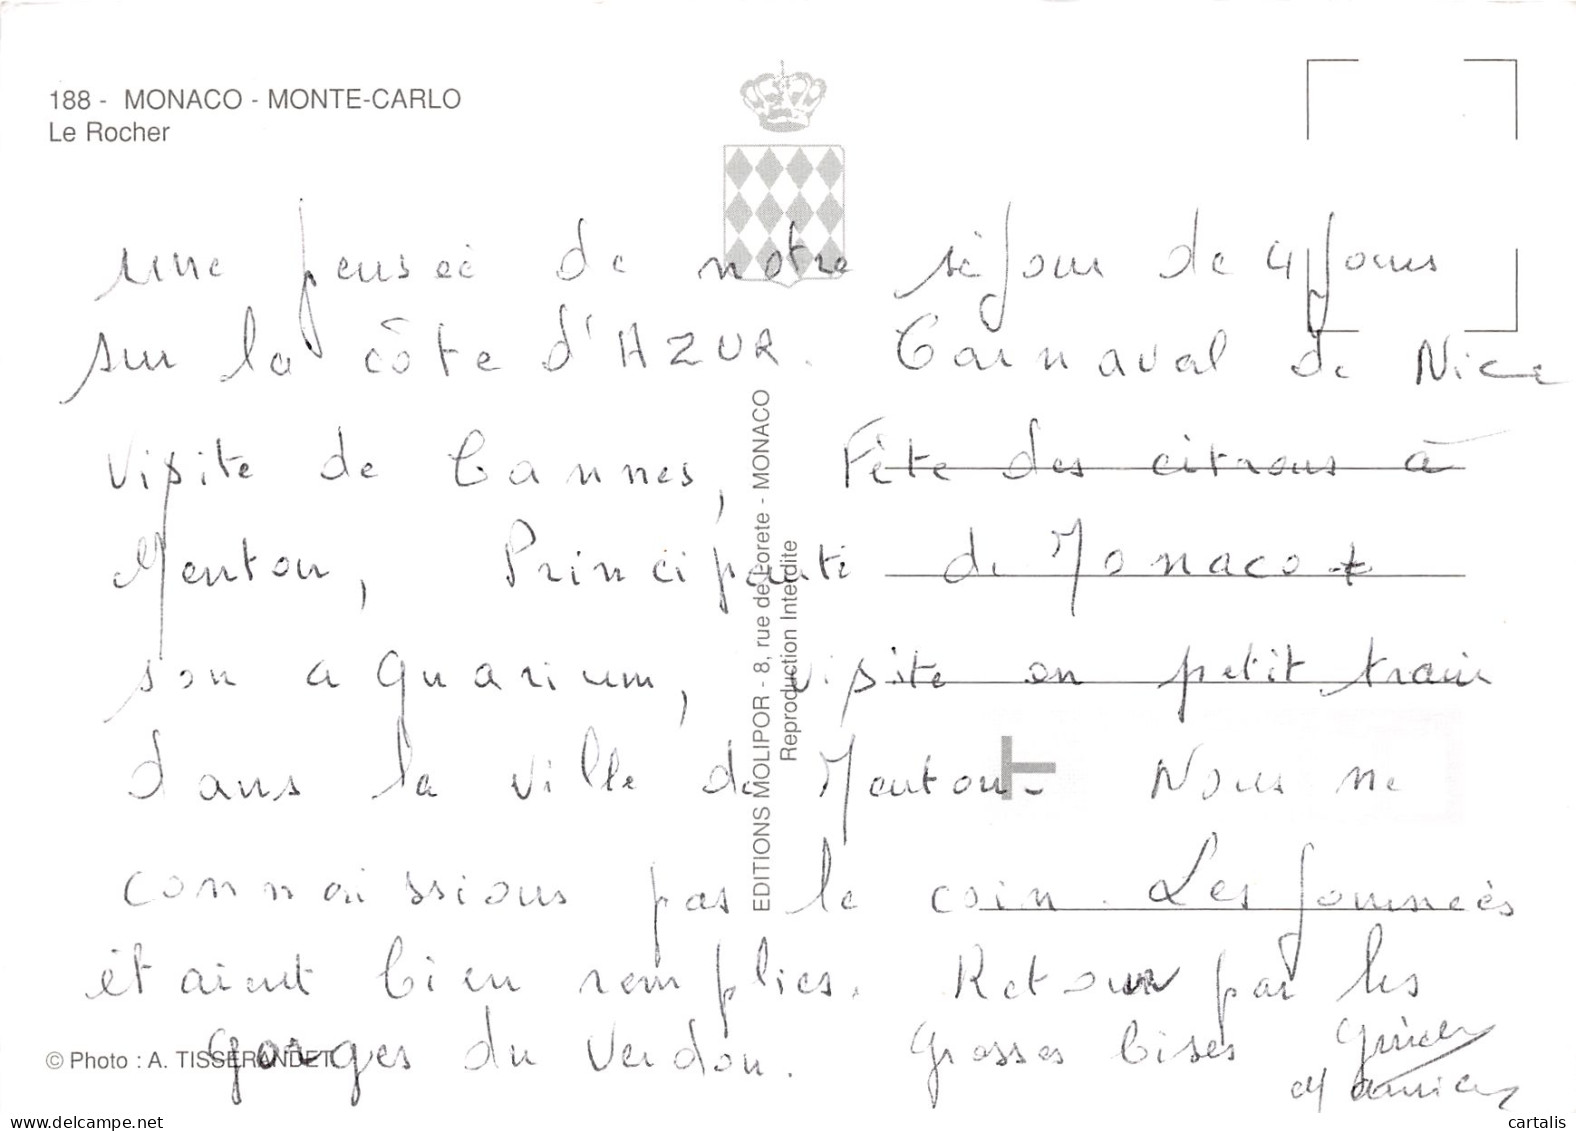 188 - MONACO - MONTE-CARLO
Le Rocher
une penseé de notre séjour de 4 jours
sur la côte d'AZUR. Carnaval de Nice
Visite de Cannes, Fête des citrons à
Menton, Principauté de Monaco +
son aquarium, visite en petit train
dans la ville de Menton. Nous ne
connaissions pas le coin. Les journeés
étaient bien remplies. Retour par les
Gorges du Verdon. Grosses bises
EDITIONS MOLIPOR - 8, rue de Lorete - MONACO
Reproduction Interdite
© Photo : A. TISSERANDET
delcampe.net
cartalis